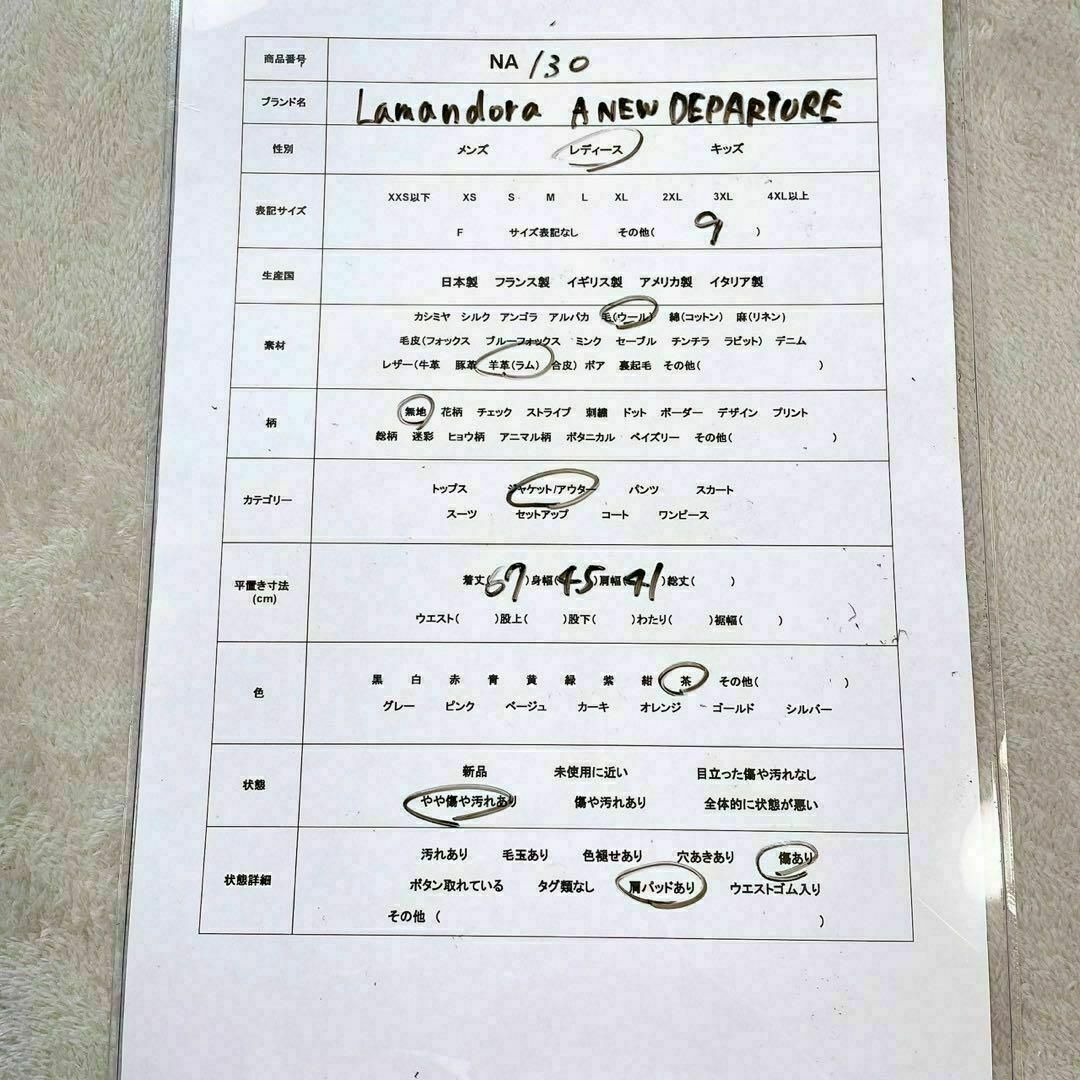 商品番号 NA 130
ブランド名 Lamandora A NEW DEPARTURE
性別 メンズ レディース キッズ
XXS以下 XS S M L XL 2XL 3XL 4XL以上
表記サイズ
F サイズ表記なし その他( 9 )
生産国 日本製 フランス製 イギリス製 アメリカ製 イタリア製
カシミヤ シルク アンゴラ アルパカ 毛(ウール) 綿(コットン) 麻(リネン)
素材 毛皮(フォックス ブルーフォックス ミンク セーブル チンチラ ラビット) デニム
レザー(牛革 豚革 羊革(ラム) 合皮) ボア 裏起毛 その他( )
無地 花柄 チェック ストライプ 刺繍 ドット ボーダー デザイン プリント
柄
総柄 迷彩 ヒョウ柄 アニマル柄 ボタニカル ペイズリー その他( )
トップス ジャケット/アウター パンツ スカート
カテゴリー
スーツ セットアップ コート ワンピース
平置き寸法 着丈( 67 )身幅( 45 )肩幅( 41 )総丈( )
(cm)
ウエスト( )股上( )股下( )わたり( )裾幅( )
黒 白 赤 青 黄 緑 紫 紺 茶 その他( )
色
グレー ピンク ベージュ カーキ オレンジ ゴールド シルバー
新品 未使用に近い 目立った傷や汚れなし
状態
やや傷や汚れあり 傷や汚れあり 全体的に状態が悪い
汚れあり 毛玉あり 色褪せあり 穴あきあり 傷あり
状態詳細 ボタン取れている タグ類なし 肩パッドあり ウエストゴム入り
その他 ( )